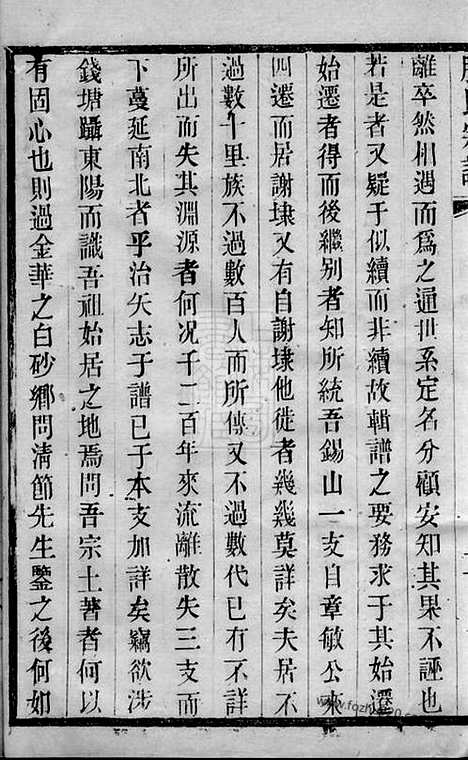 離卒然相遇而爲之通世系定名分顧安知其果不誣也
若是者又疑于似續而非續故輯譜之要務求于其始遷
始遷者得而後繼別者知所統吾錫山一支自章敏公來
四遷而居謝埭又有自謝埭他徙者幾幾莫詳矣夫居不
過數十里族不過數百人而所傳又不過數代已有不詳
所出而失其淵源者何况千二百年來流離散失三支而
下蔓延南北者乎治矢志于譜已于本支加詳矣竊欲涉
錢塘躡東陽而識吾祖始居之地焉問吾宗土著者何以
有固心也則過金華之白砂鄉問清節先生鑒之後何如